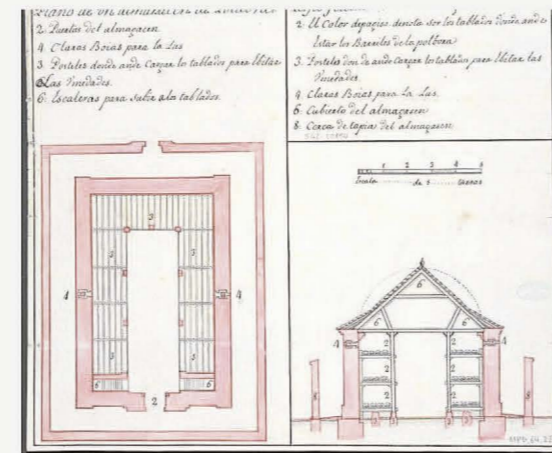 Plano de Un almahacen de
2. Puertas del almaçaen
4. Claras Boias para la Lus
3. Porteles donde ande Carpar los tablados para Ebitar
Las Vmedades.
6. Escaleras para Subir a la tablados.
2. El Color depagiso denota ser los tablados donde ande
Estar los Barriles de la polbora
3. Porteles don de ande carpar los tablados para Ebitar las
Vmedades.
4. Claras Boias para La Lus.
6. Cubierto del almaçaen
8. Cerca de tapia del almaçaen
1 2 3 4 5
Escala de 5
3
3 3
4 4
3 3
6 6
2
6
6 6
4 4
2 2
2 2
2 2
3 3 3 3
8 8